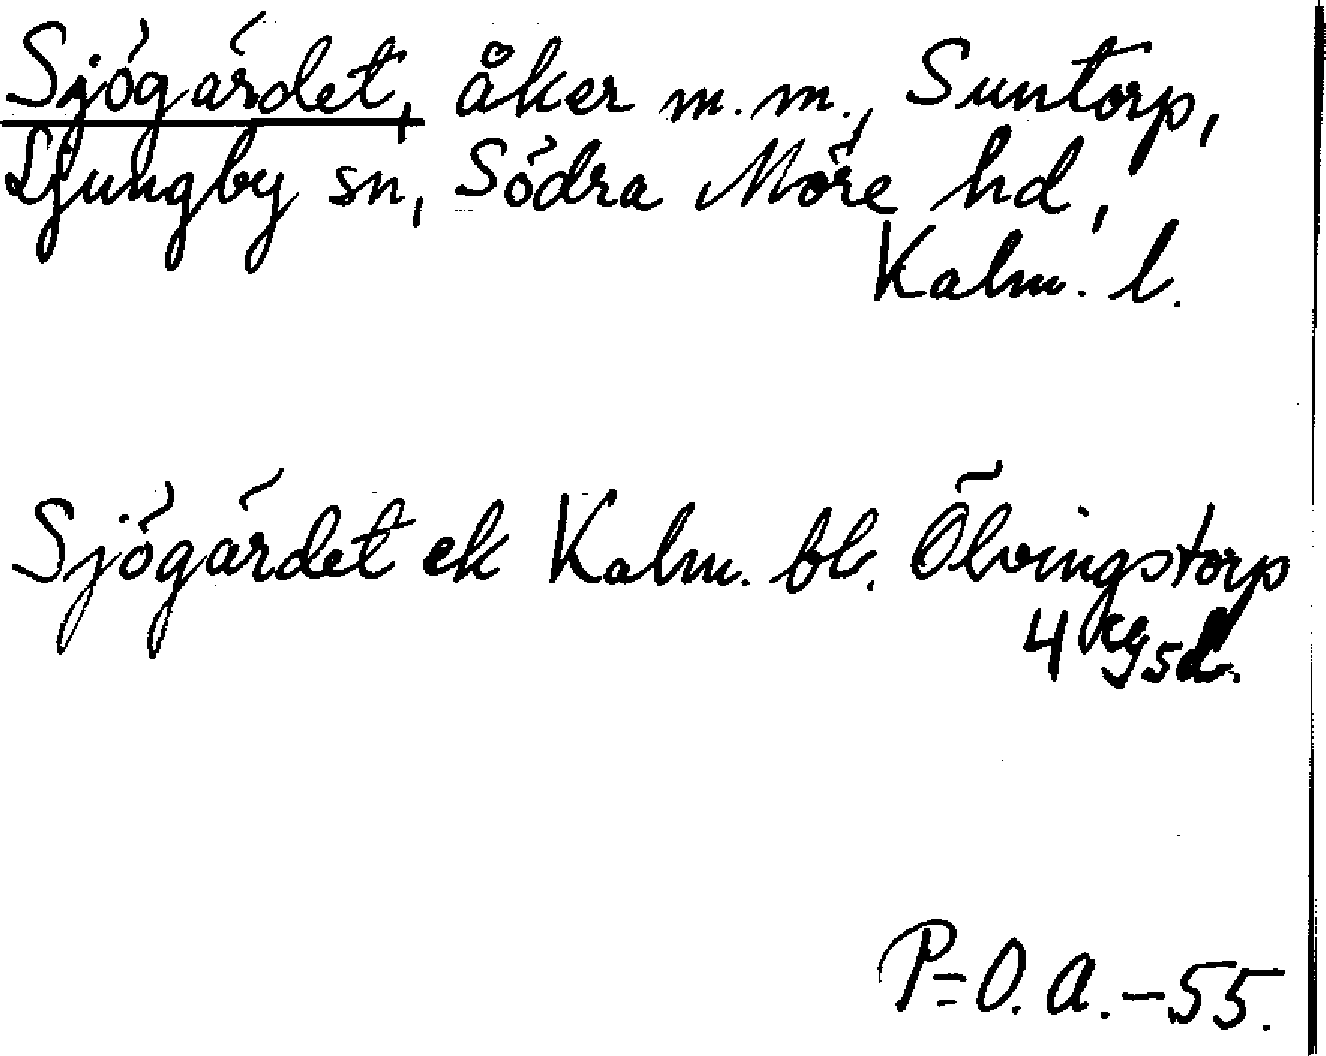 Sjögärdet, åker m.m., Suntorp,
Ljungby sn, Södra Möre hd,
Kalm. l.
Sjögärdet ek Kalm. bl. Ölvingstorp
4 gsd.
P=O.A.-55.